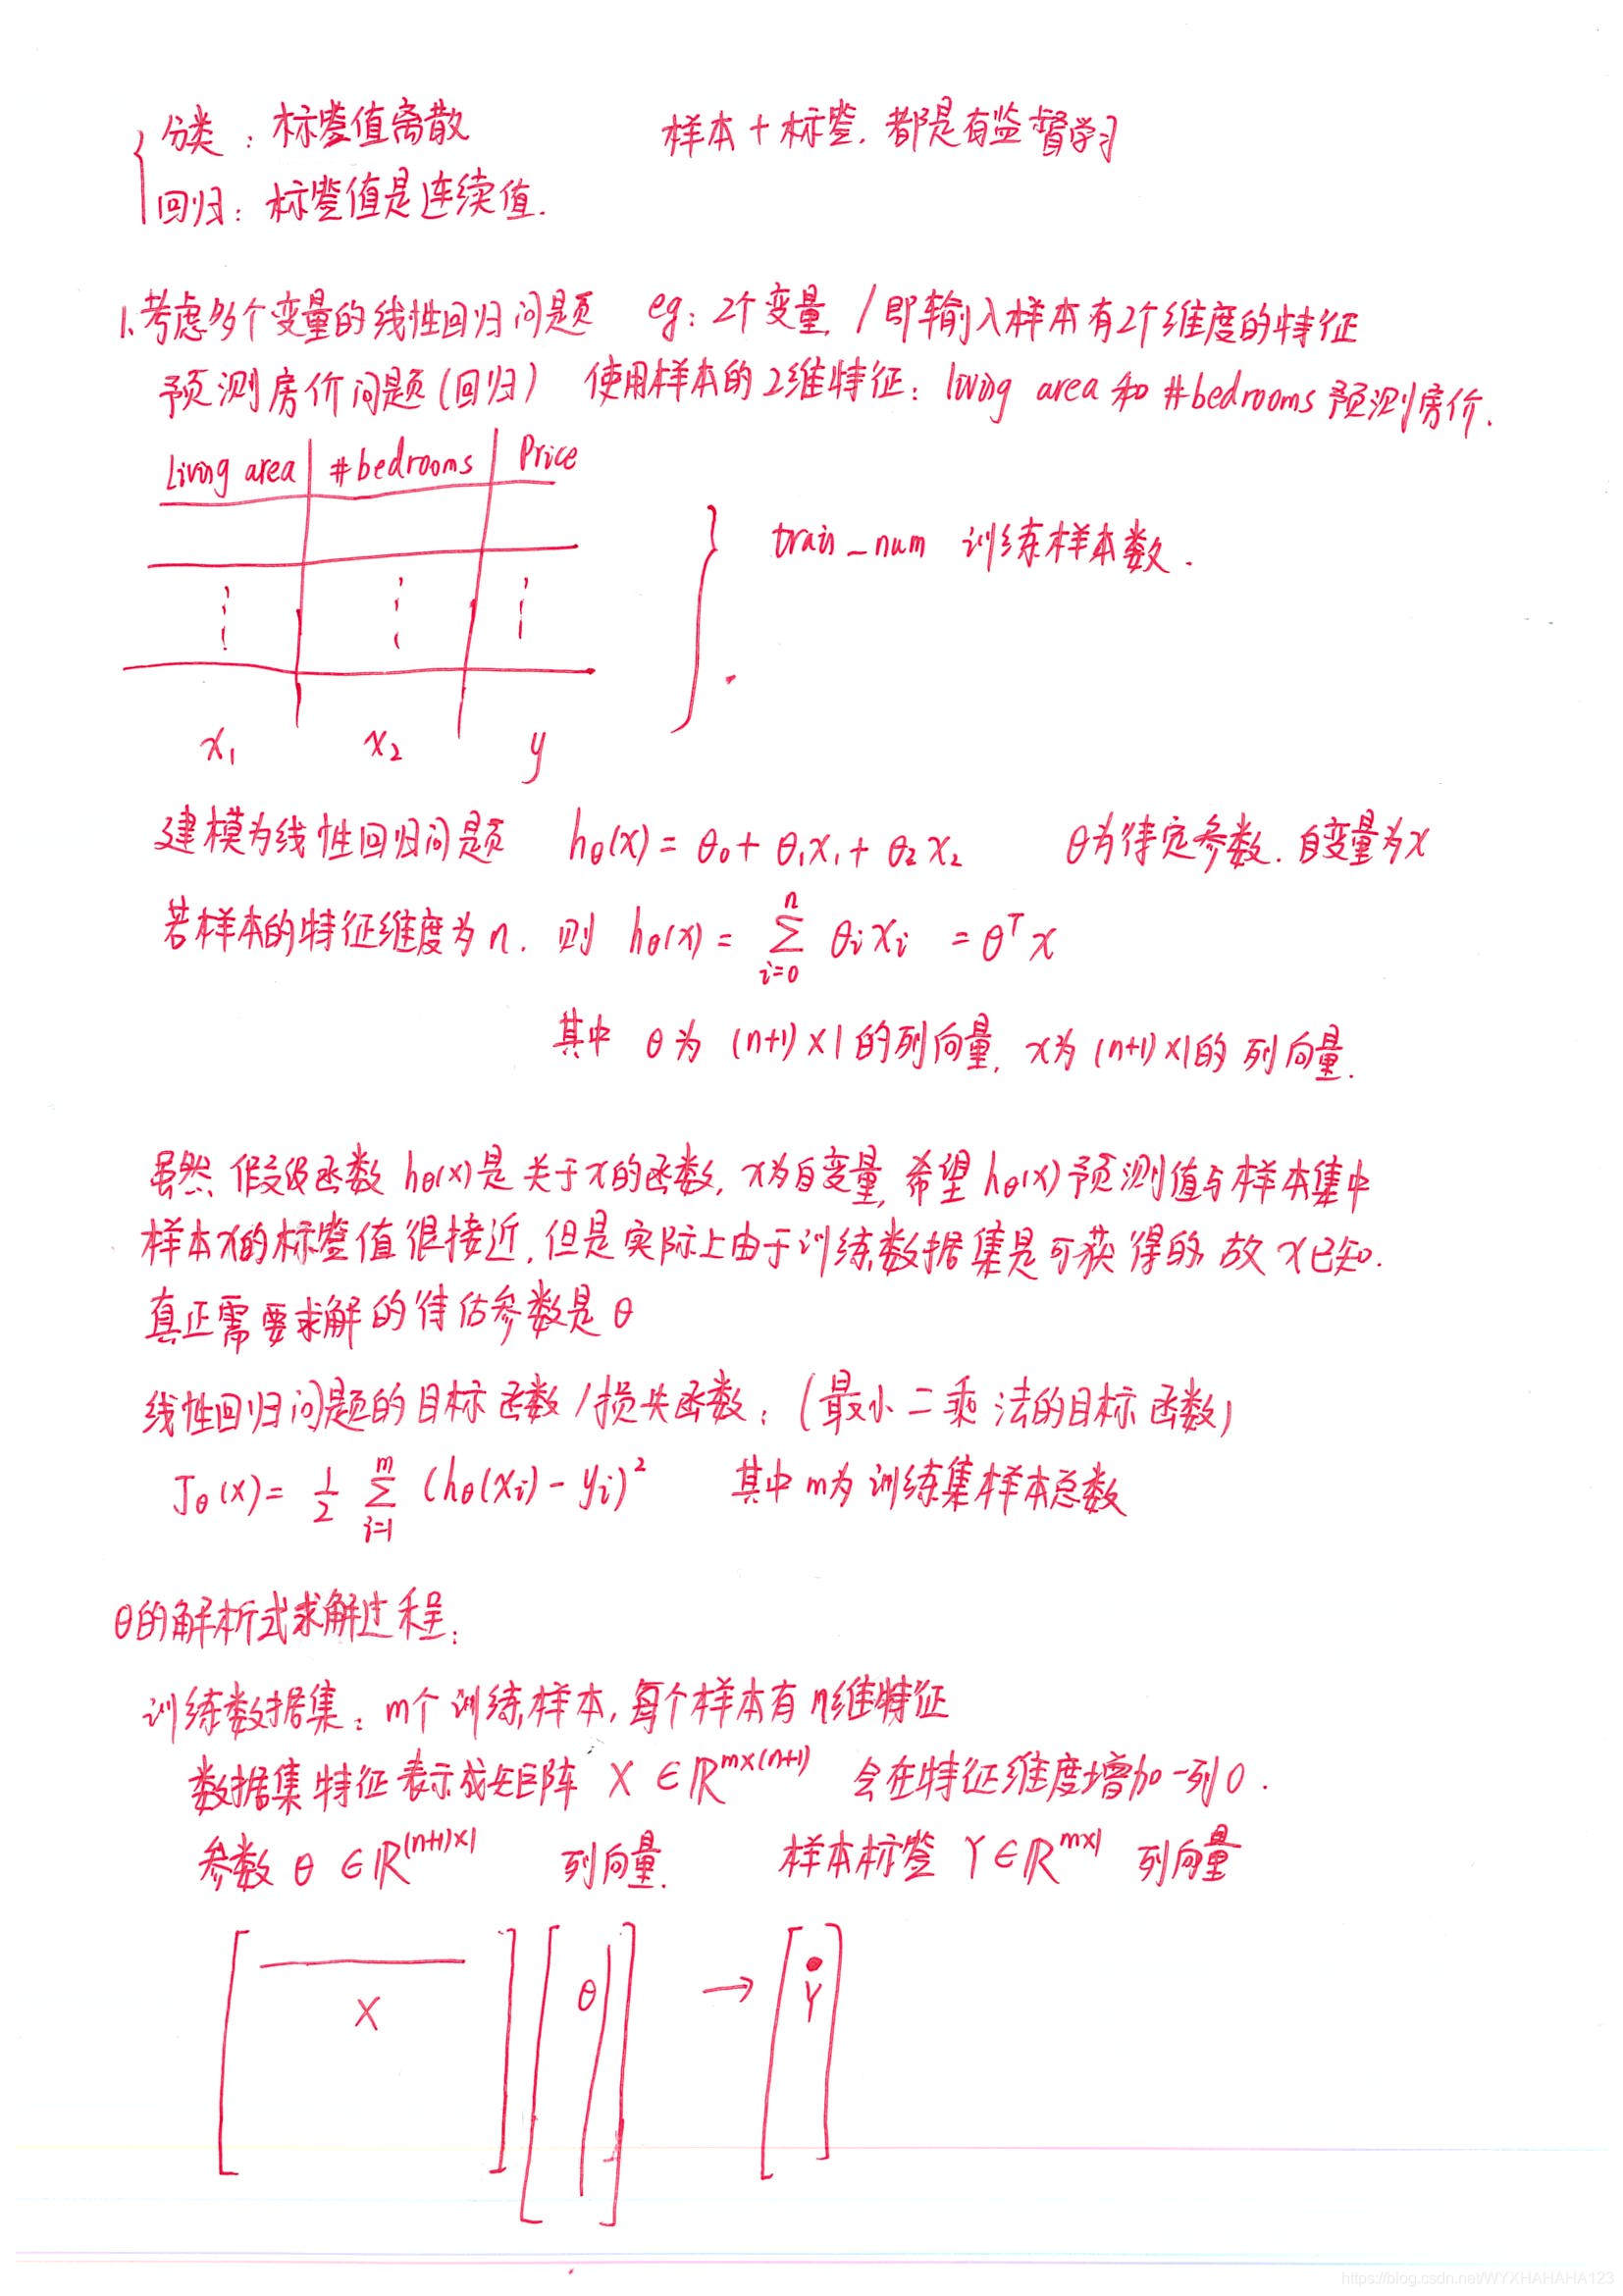 分类：标签值离散 样本+标签. 都是有监督学习
回归：标签值是连续值.
1.考虑多个变量的线性回归问题 eg：2个变量, /即输入样本有2个维度的特征
预测房价问题(回归) 使用样本的2维特征：living area和 #bedrooms 预测房价.
Living area #bedrooms Price
train_num 训练样本数.
x₁ x₂ y
建模为线性回归问题 hθ(x) = θ₀ + θ₁x₁ + θ₂x₂ θ为待定参数. 自变量为x
若样本的特征维度为n. 则 hθ(x) = ∑_{i=0}^{n} θᵢxᵢ = θᵀx
其中 θ为 (n+1)×1的列向量, x为 (n+1)×1的列向量.
虽然假设函数 hθ(x)是关于x的函数, x为自变量, 希望hθ(x)预测值与样本集中
样本x的标签值很接近, 但是实际上由于训练数据集是可获得的, 故x已知.
真正需要求解的待估参数是θ
线性回归问题的目标函数/损失函数：(最小二乘法的目标函数)
Jθ(x) = 1/2 ∑_{i=1}^{m} (hθ(xᵢ) - yᵢ)² 其中m为训练集样本总数
θ的解析式求解过程：
训练数据集：m个训练样本, 每个样本有n维特征
数据集特征表示成矩阵 X∈ℝ^{m×(n+1)} 会在特征维度增加一列0.
参数 θ∈ℝ^{(n+1)×1} 列向量. 样本标签 Y∈ℝ^{m×1} 列向量
[X] [θ] → [Y]
https://blog.csdn.net/WYXHAHAHA123